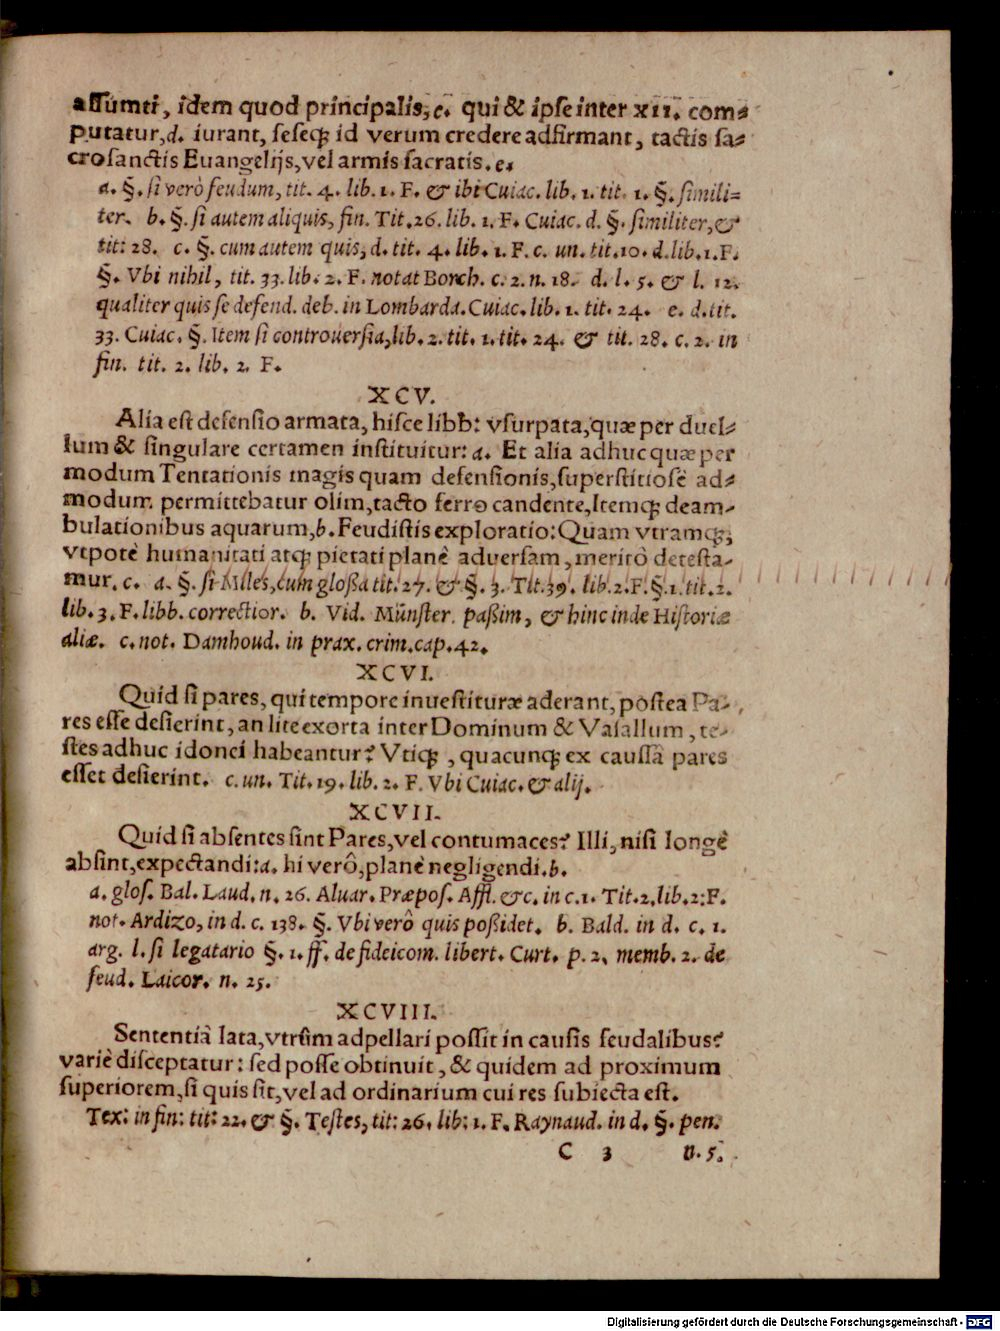 assumti, idem quod principalis, c. qui & ipse inter XII. com-
putatur, d. iurant, seseq́; id verum credere adfirmant, tactis sa-
crosanctis Euangelijs, vel armis sacratis. e.
a. §. si verò feudum, tit. 4. lib. 1. F. & ibi Cuiac. lib. 1. tit. 1. §. simili-
ter. b. §. si autem aliquis, fin. Tit. 26. lib. 1. F. Cuiac. d. §. similiter, &
tit: 28. c. §. cum autem quis, d. tit. 4. lib. 1. F. c. un. tit. 10. d. lib. 1. F.
§. Vbi nihil, tit. 33. lib. 2. F. notat Borch. c. 2. n. 18. d. l. 5. & l. 12.
qualiter quis se defend. deb. in Lombarda. Cuiac. lib. 1. tit. 24. e. d. tit.
33. Cuiac. §. Item si controuersia, lib. 2. tit. 1. tit. 24. & tit. 28. c. 2. in
fin. tit. 2. lib. 2. F.
XCV.
Alia est defensio armata, hisce libb: vsurpata, quæ per duel-
lum & singulare certamen instituitur: a. Et alia adhuc quæ per
modum Tentationis magis quam defensionis, superstitiosè ad-
modum permittebatur olim, tacto ferro candente, Itemq́; deam-
bulationibus aquarum, b. Feudistis exploratio: Quam vtramq́;,
vtpotè humanitati atq́; pietati planè aduersam, meritò detesta-
mur. c. a. §. si Miles, cum gloßa tit. 27. & §. 3. Tit. 39. lib. 2. F. §. 1. tit. 2.
lib. 3. F. libb. correctior. b. Vid. Münster. paßim, & hinc inde Historiæ
aliæ. c. not. Damhoud. in prax. crim. cap. 42.
XCVI.
Quid si pares, qui tempore inuestituræ aderant, postea Pa-
res esse desierint, an lite exorta inter Dominum & Vasallum, te-
stes adhuc idonei habeantur? Vtiq́;, quacunq́; ex caussâ pares
esset desierint. c. un. Tit. 19. lib. 2. F. Vbi Cuiac. & alij.
XCVII.
Quid si absentes sint Pares, vel contumaces? Illi, nisi longè
absint, expectandi: a. hi verò, planè negligendi. b.
a. glos. Bal. Laud. n. 26. Aluar. Præpos. Affl. &c. in c. 1. Tit. 2. lib. 2: F.
not. Ardizo, in d. c. 138. §. Vbi verò quis poßidet. b. Bald. in d. c. 1.
arg. l. si legatario §. 1. ff. de fideicom. libert. Curt. p. 2. memb. 2. de
feud. Laicor. n. 25.
XCVIII.
Sententiâ lata, vtrùm adpellari possit in causis feudalibus?
variè disceptatur: sed posse obtinuit, & quidem ad proximum
superiorem, si quis sit, vel ad ordinarium cui res subiecta est.
Tex: in fin: tit: 22. & §. Testes, tit: 26. lib: 1. F. Raynaud. in d. §. pen.
C 3 n. 5.
Digitalisierung gefördert durch die Deutsche Forschungsgemeinschaft - DFG